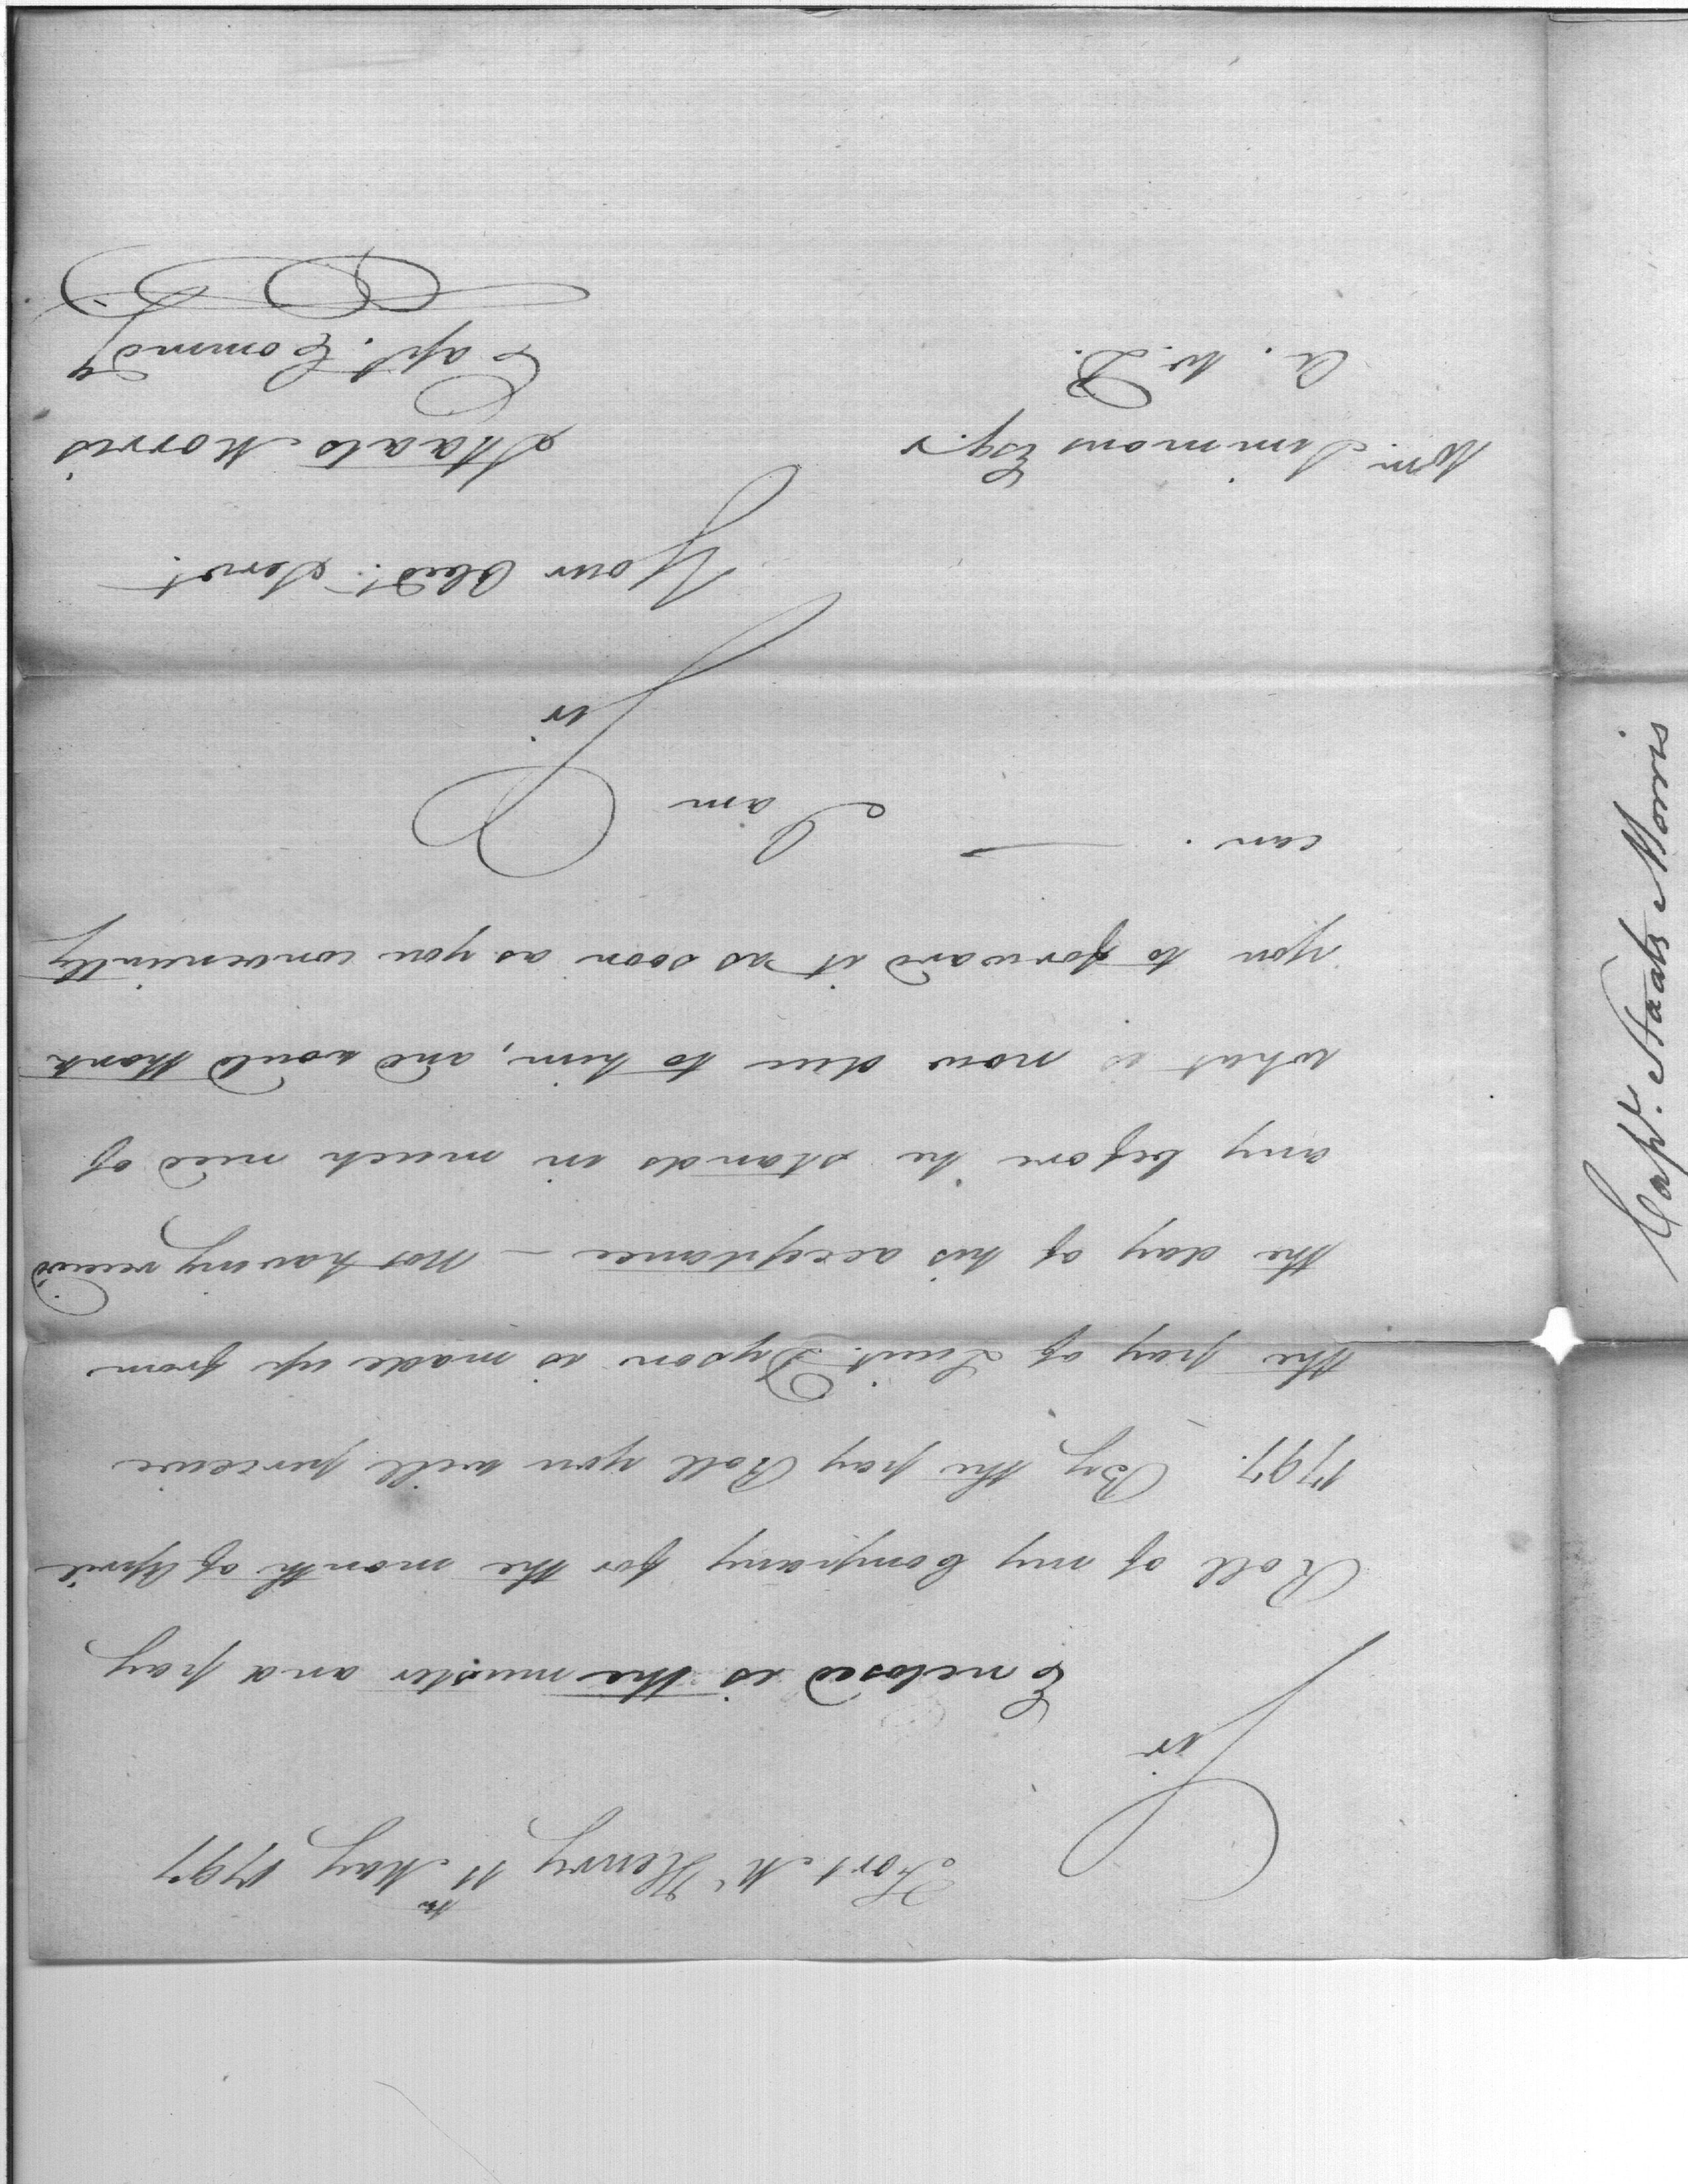 Fort McHenry 11th May 1797
Sir
Enclosed is the muster and pay
Roll of my Company for the month of April
1797. By the pay Roll you will perceive
the pay of Lieut. Dyson is made up from
the day of his acceptance – Not having received
any before he stands in much need of
what is now due to him, and would thank
you to forward it as soon as you conveniently
can. — I am
Sir
Your Obedt. Servt.
Staats Morris
Capt. Commdg
Wm. Simmons Esqr
A. W. D.
Capt. Staats Morris